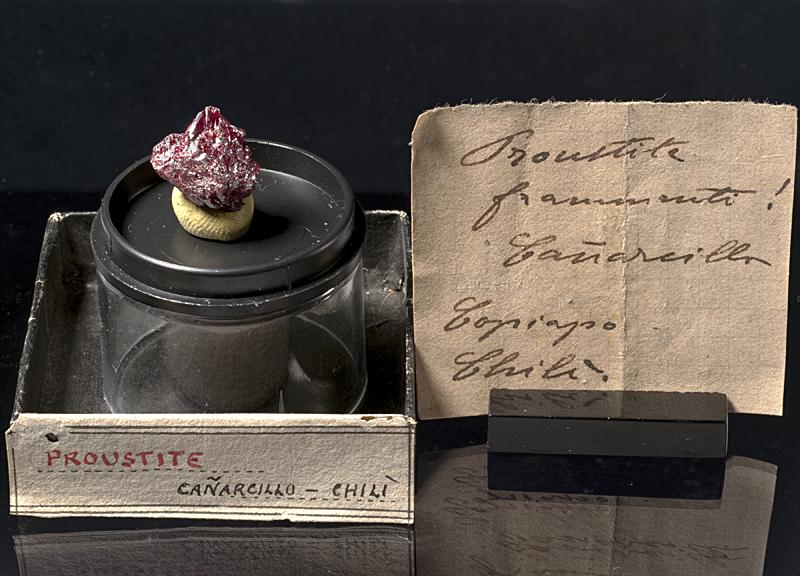 PROUSTITE
CAÑARCILLO - CHILÌ
Proustite
frammenti!
Cañarcillo
Copiapo
Chilì.